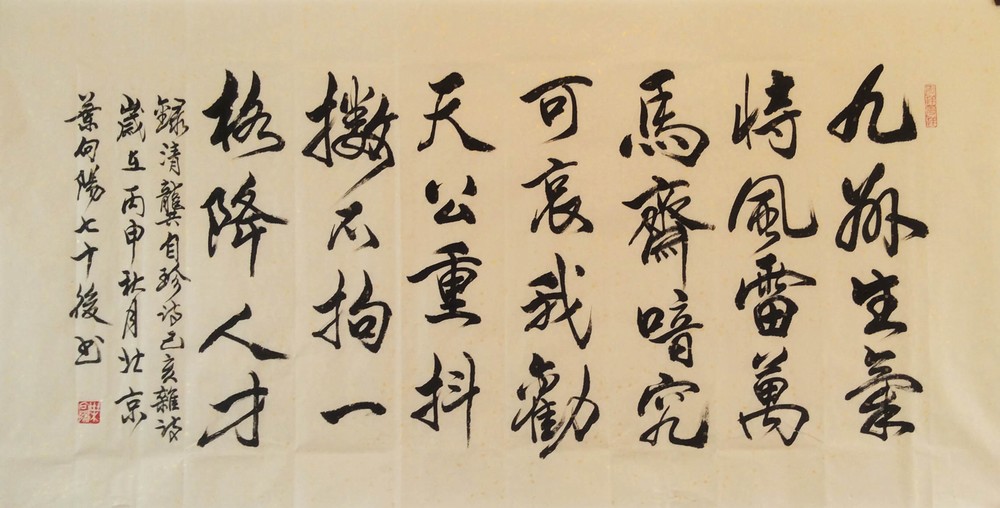 九州生氣
恃風雷萬
馬齊喑究
可哀我勸
天公重抖
擻不拘一
格降人才
録清龔自珍詩己亥雜詩
歲在丙申秋月北京
葉向陽七十後书